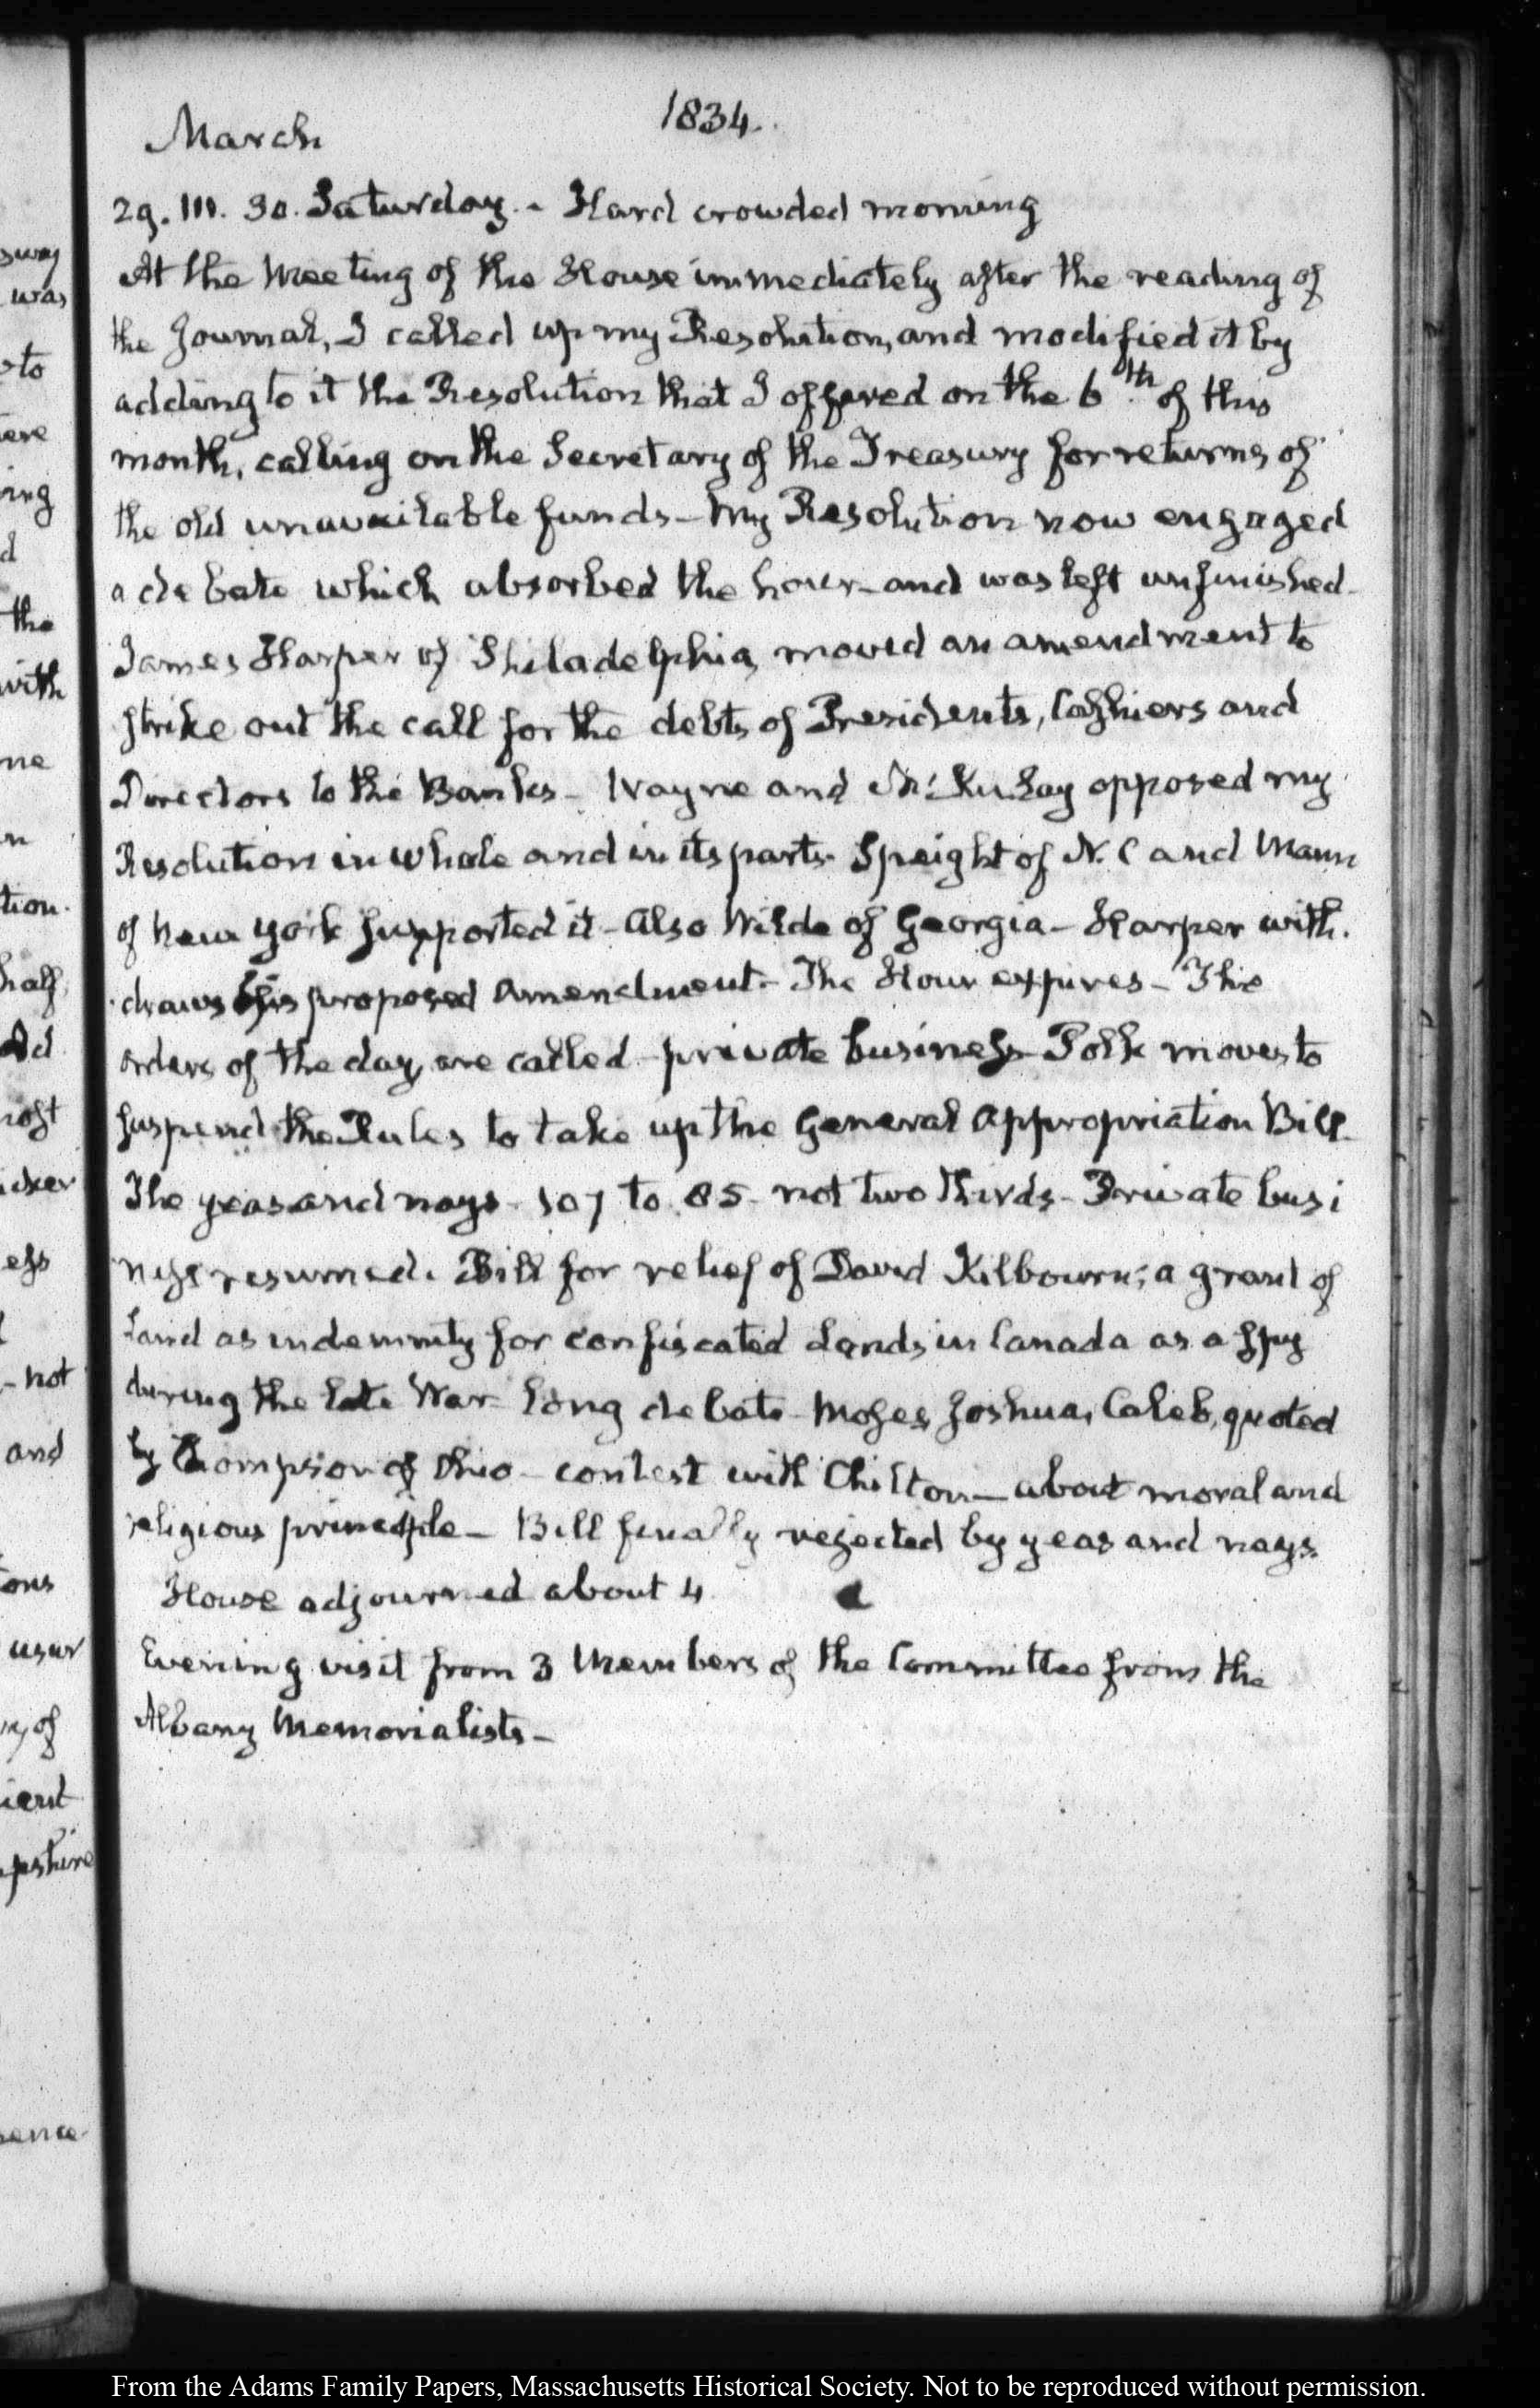 March 1834.
29. III. 30. Saturday. - Hard crowded morning
At the Meeting of the House immediately after the reading of
the Journal, I called up my Resolution, and modified it by
adding to it the Resolution that I offered on the 6th of this
month, calling on the Secretary of the Treasury for returns of
the old unavailable funds - My Resolution now engaged
a debate which absorbed the hour - and was left unfinished -
James Harper of Philadelphia, moved an amendment to
strike out the call for the debts of Presidents, Cashiers and
Directors to the Banks - Wayne and McKinlay opposed my
Resolution in whole and in its parts. Speight of N. C and Mann
of New York supported it - Also Wilde of Georgia - Harper with.
draws his proposed Amendment - The Hour expires - The
orders of the day, are called - private business - Polk moves to
suspend the Rules to take up the General Appropriation Bill
The yeas and nays - 107 to 85 - not two thirds - Private busi
ness resumed. Bill for relief of David Kilbourn; a grant of
Land as indemnity for confiscated Lands in Canada as a spy
during the late War - long debate - Moses, Joshua, Caleb, quoted
by Thompson of Ohio - contest with Chilton - about moral and
religious principle - Bill finally rejected by yeas and nays.
House adjourned about 4
Evening visit from 3 Members of the Committee from the
Albany Memorialists -
sway
was
to
ere
ring
d
the
with
me
n
tion.
half
rost
icker
ess
- not
and
ons
usur
of
ient
pshire
ence
From the Adams Family Papers, Massachusetts Historical Society. Not to be reproduced without permission.